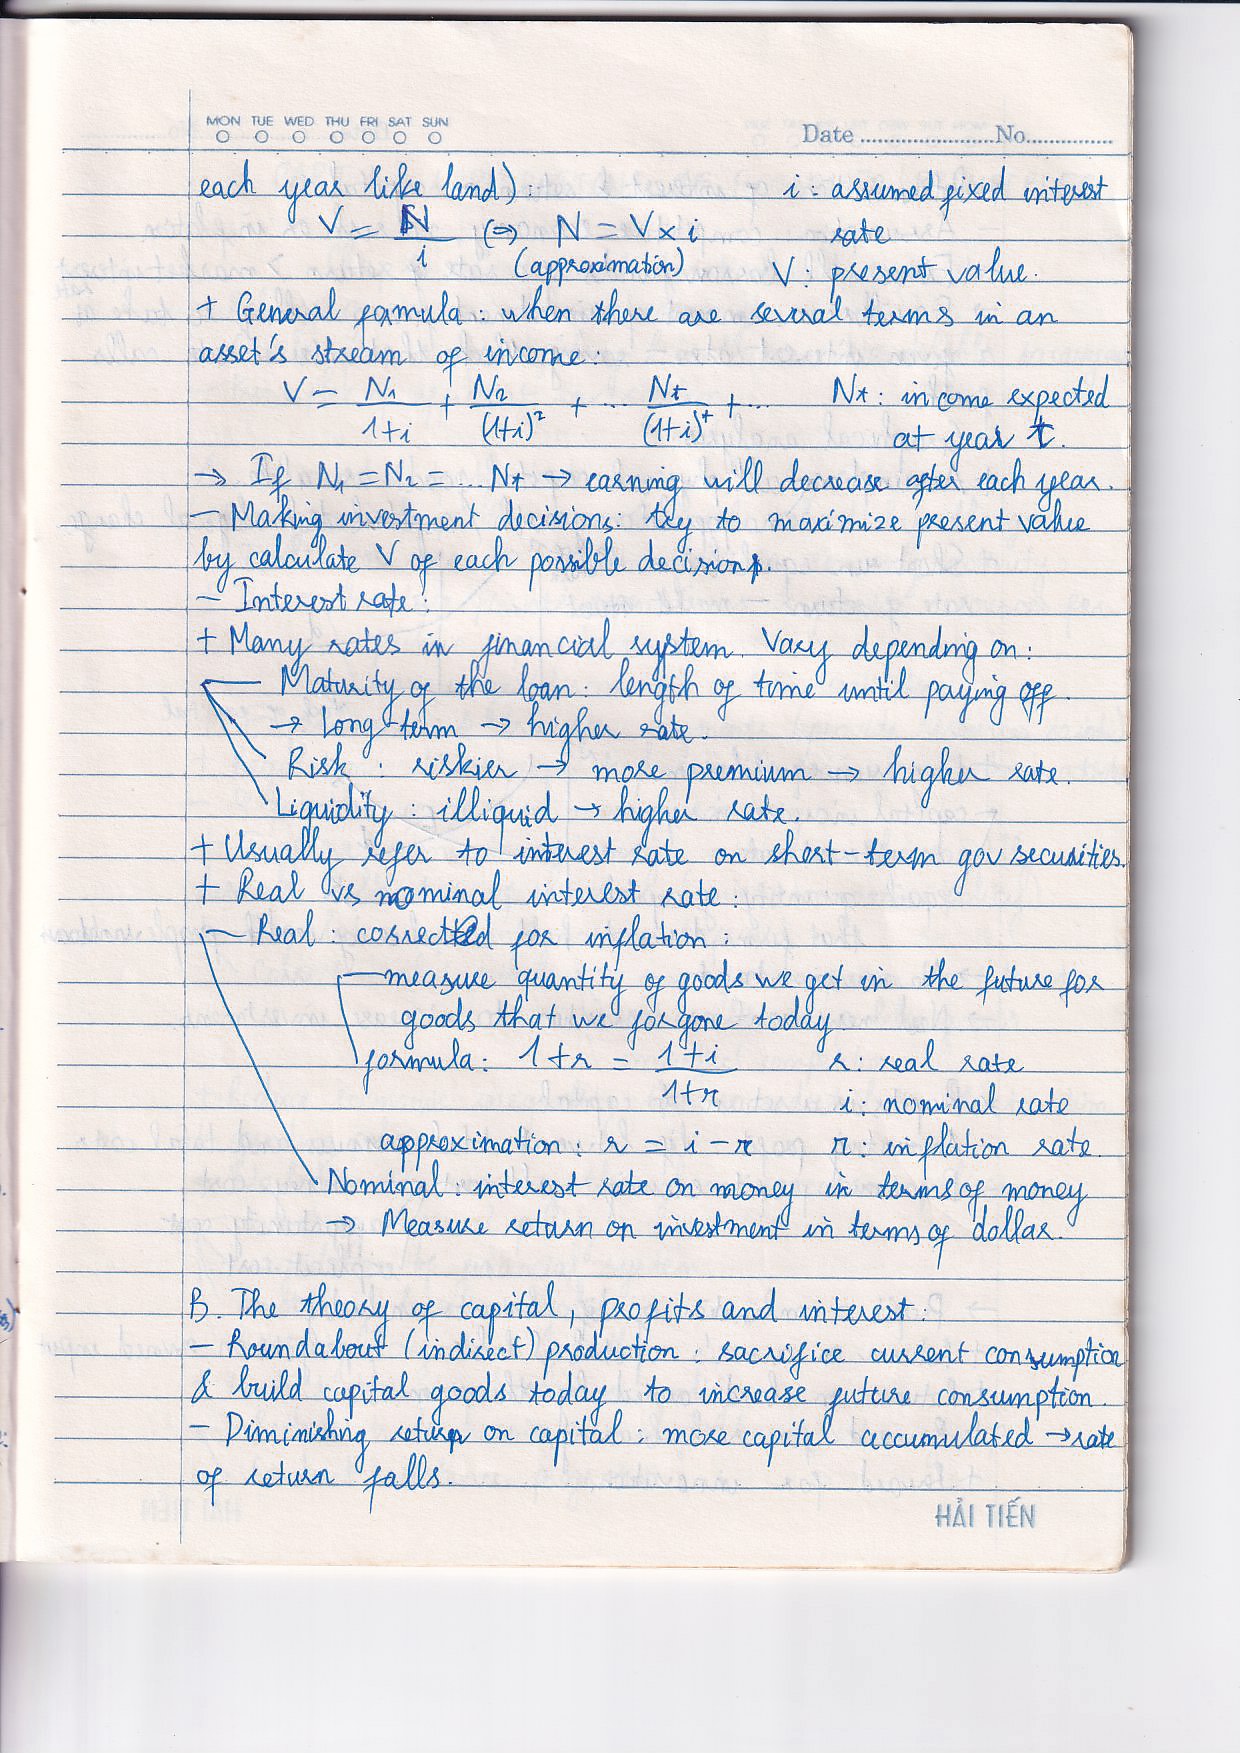 MON TUE WED THU FRI SAT SUN
Date ........................No...............
each year like land): i: assumed fixed interest
V = N/i <=> N = V x i rate
(approximation) V: present value.
+ General formula: when there are several terms in an
asset's stream of income:
V = N₁/(1+i) + N₂/(1+i)² + ... Nt/(1+i)^t + ... Nt: income expected
at year t.
→ If N₁ = N₂ = ... Nt → earning will decrease after each year.
- Making investment decisions: try to maximize present value
by calculate V of each possible decision.
- Interest rate:
+ Many rates in financial system. Vary depending on:
Maturity of the loan: length of time until paying off.
→ Long-term → higher rate.
Risk: riskier → more premium → higher rate.
Liquidity: illiquid → higher rate.
+ Usually refer to interest rate on short-term gov securities.
+ Real vs nominal interest rate:
Real: corrected for inflation:
measure quantity of goods we get in the future for
goods that we forgone today
formula: 1+r = (1+i)/(1+π) r: real rate
i: nominal rate
approximation: r = i - π π: inflation rate.
Nominal: interest rate on money in terms of money
→ Measure return on investment in terms of dollar.
B. The theory of capital, profits and interest:
- Roundabout (indirect) production: sacrifice current consumption
& build capital goods today to increase future consumption.
- Diminishing return on capital: more capital accumulated → rate
of return falls.
HẢI TIẾN